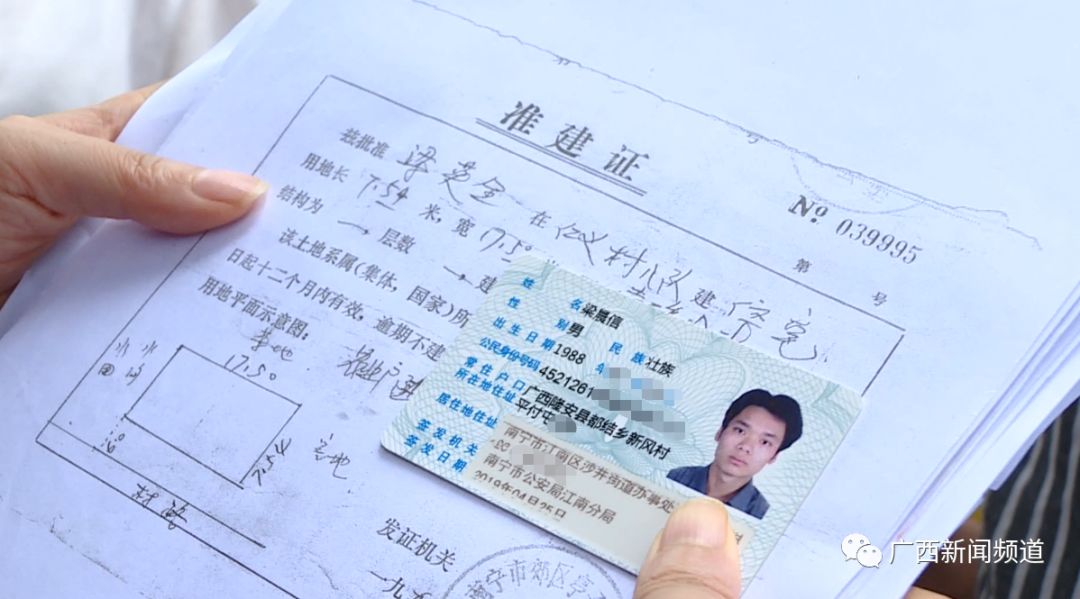 准建证
No 039995
第 号
兹批准 梁英全 在 仁义村小队 建 住宅
用地长 7.54 米，宽 17.50
结构为 层数 建
该土地系属(集体，国家)所
日起十二个月内有效，逾期不建
用地平面示意图：
17.50
7.54
空地
村路
发证机关
一九
姓名 梁晨信
性别 男 民族 壮族
出生日期 1988 年
公民身份号码 4521261
常住户口所在地住址 广西隆安县都结乡新风村
平付屯
居住地住址 南宁市江南区沙井街道办事处
签发机关 南宁市公安局江南分局
签发日期 2019年04月25日
广西新闻频道